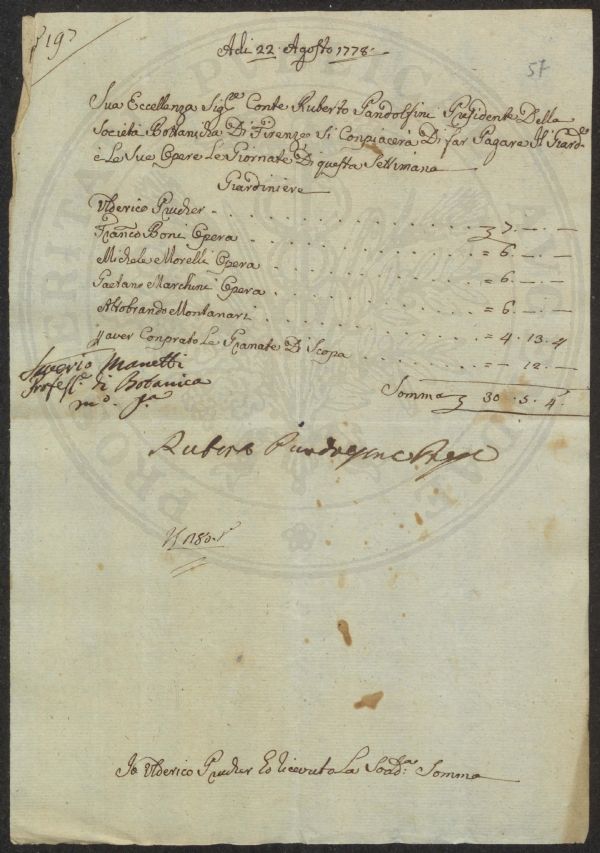 197
57
Adi 22. Agosto 1778.
Sua Eccellenza Sig.re Conte Ruberto Pandolfini Presidente Della
Società Bottanicha Di Firenze Si Conpiacerà Di far Pagare Il Giard.e
e Le Sue Opere Le Giornate Di questa Settimana
Giardiniere
Ulderico Prucher . . . . 7. — . —
Franco Boni Opera . . . . = 6. — . —
Michele Morelli Opera . . . . = 6. — . —
Gaetano Marchini Opera . . . . = 6. — . —
Aldobrando Montanari . . . . = 4. 13. 4
aver Conprato Le Granate Di Scopa . . . . = — 12. —
Somma 30. 5. 4.
Saverio Manetti
Profess.e di Botanica
m.o p.a
Ruberto Pandolfini
Io Ulderico Prucher Ho ricevuto La Sead.a Somma
PUBLICAE
PROSPERITATI